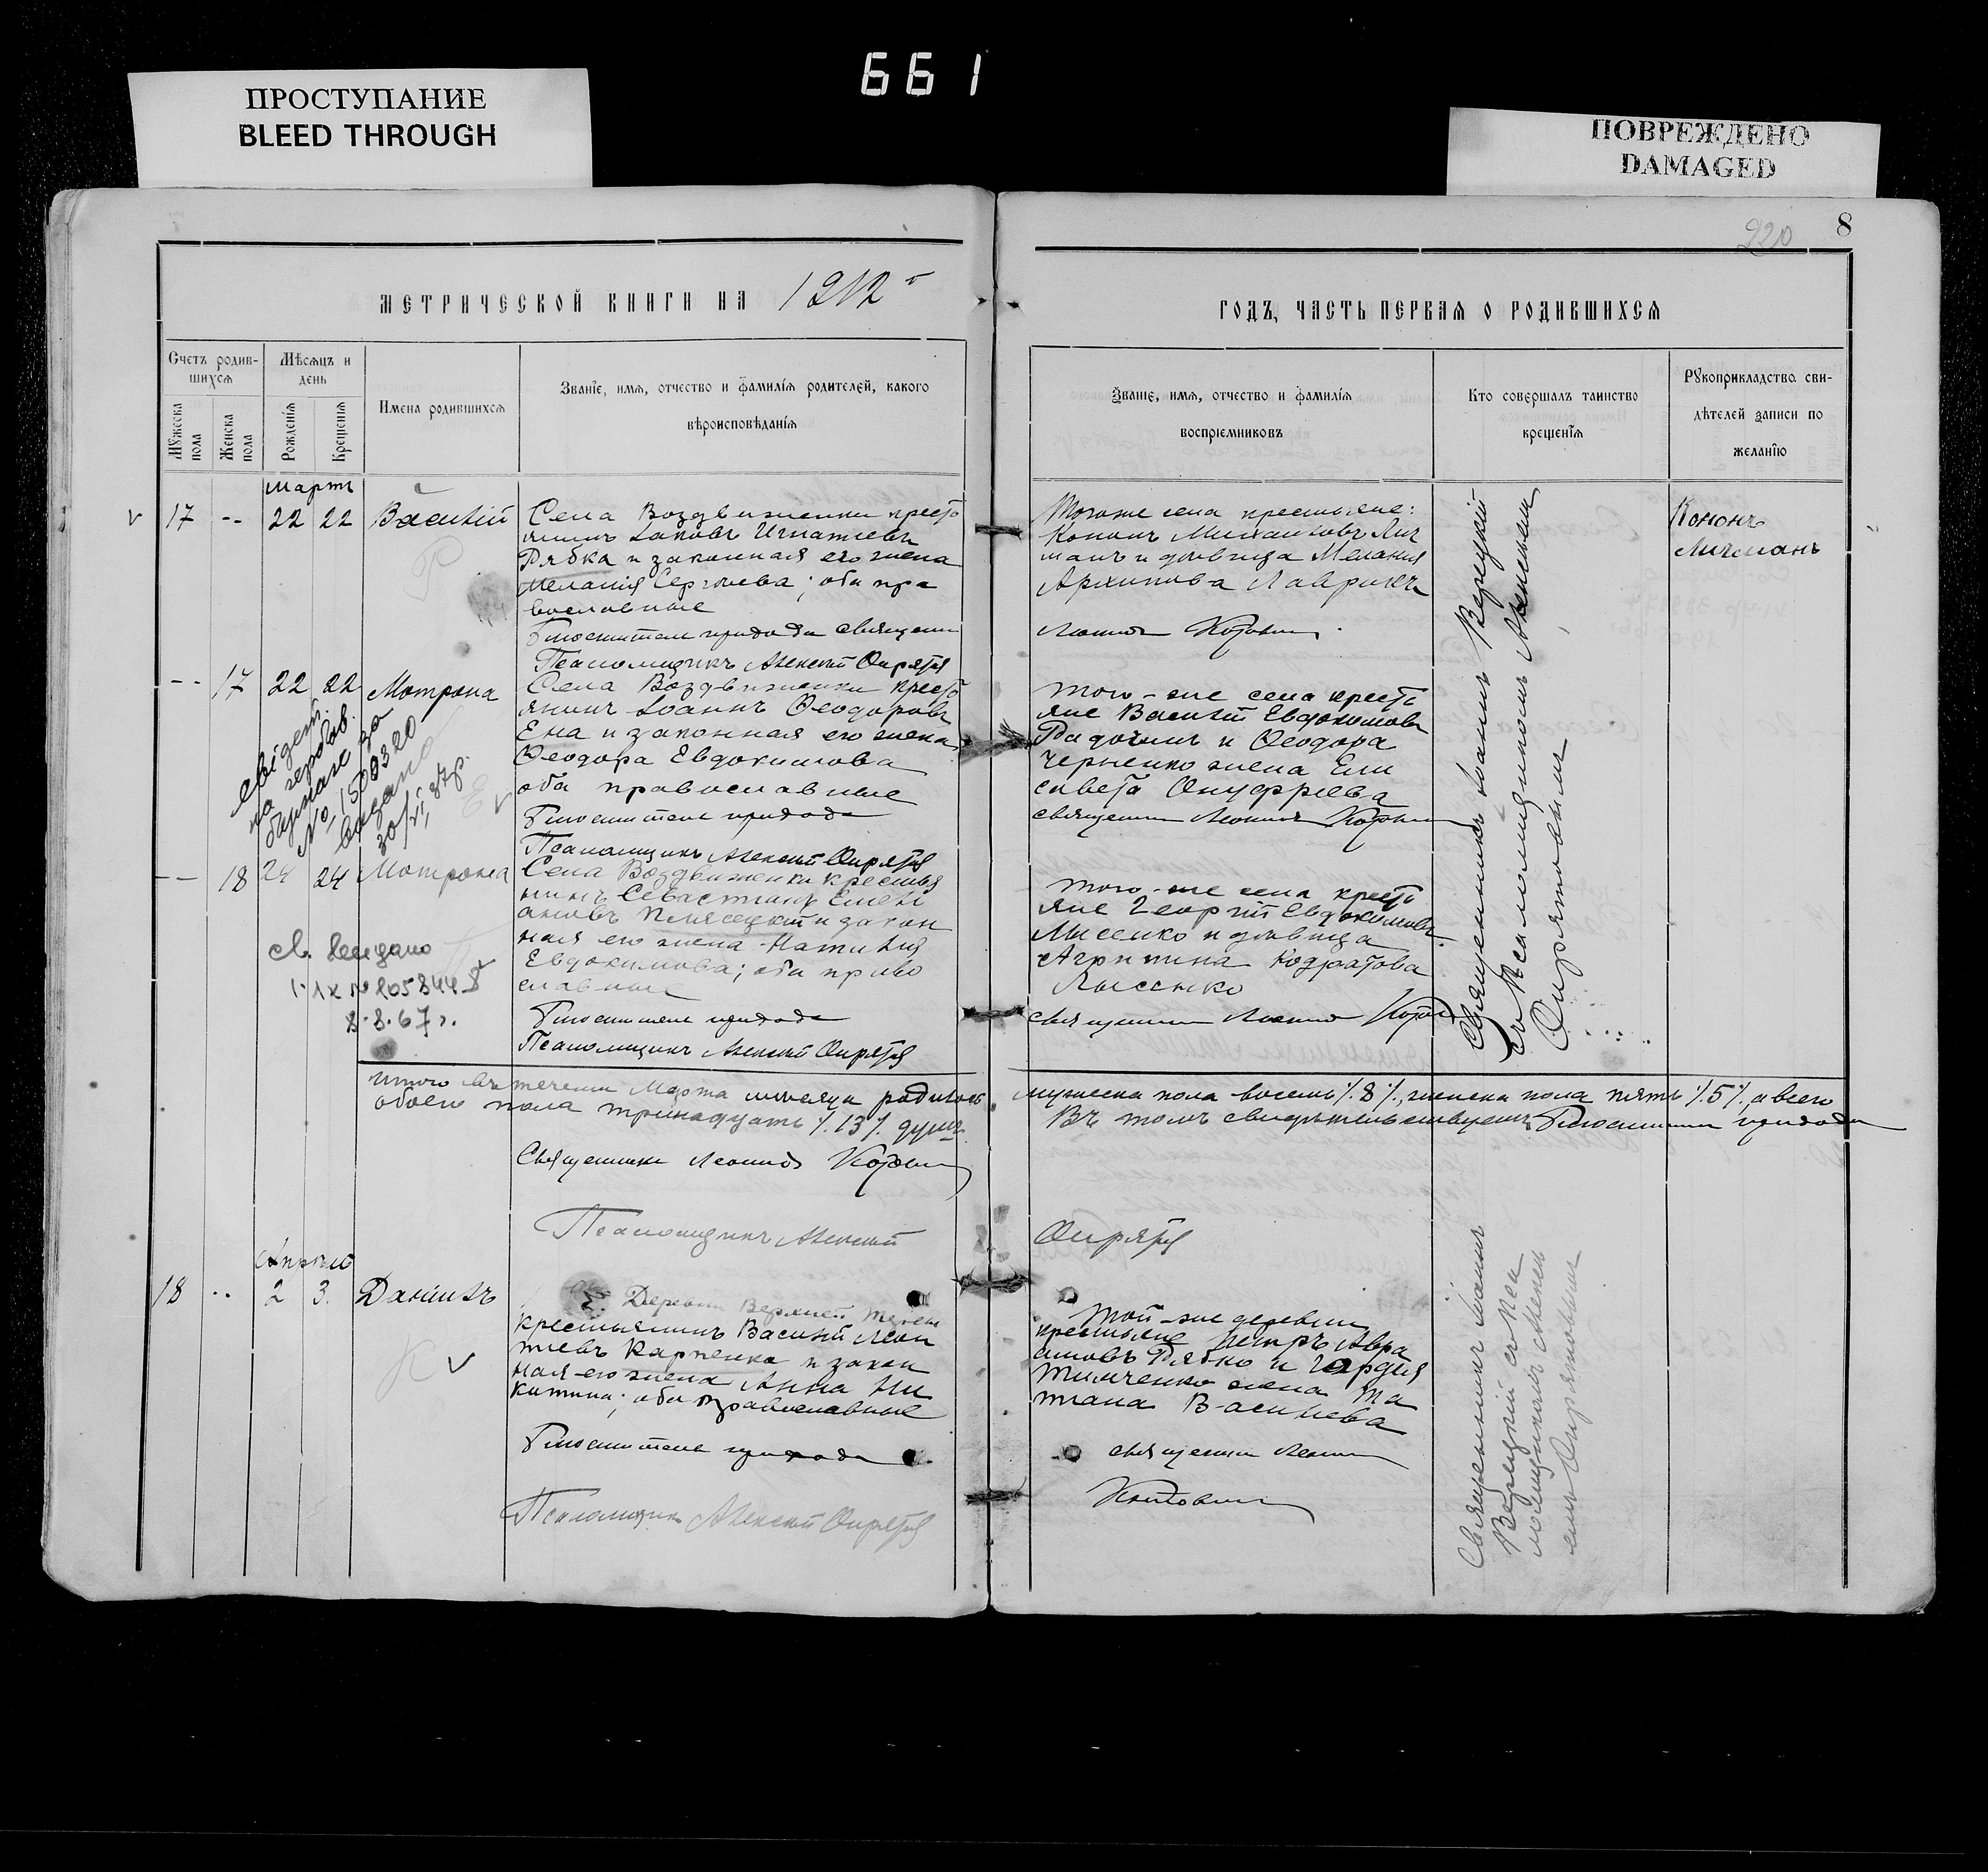 661
ПРОСТУПАНИЕ
BLEED THROUGH
ПОВРЕЖДЕНО
DAMAGED
220 8
МЕТРИЧЕСКОЙ КНИГИ НА 1912
ГОДЪ, ЧАСТЬ ПЕРВАЯ О РОДИВШИХСЯ
Счетъ родив-
шихся
Мужеска
пола
Женска
пола
Мѣсяцъ и
день
Рожденія
Крещенія
Имена родившихся
Званіе, имя, отчество и фамилія родителей, какого
вѣроисповѣданія
Званіе, имя, отчество и фамилія
воспріемниковъ
Кто совершалъ таинство
крещенія
Рукоприкладство сви-
дѣтелей записи по
желанію
Мартъ
17 -- 22 22 Василій
Села Воздвиженки кресть
янинъ Іаковъ Игнатіевъ
Рябка и законная его жена
Меланія Сергіева; оба пра
вославные
священник
Псаломщикъ Алексій Опрятов
Того же села крестьяне:
Кононъ Михаиловъ Лич
манъ и дѣвица Меланія
Архипова Лаврикъ
Леонид
Кононъ
Личманъ
-- 17 22 22 Мотрона
Села Воздвиженки кресть
янинъ Іоаннъ Ѳеодоровъ
Ена и законная его жена
Ѳеодора Евдокимова
оба православные
прихода
Псаломщикъ Алексій Опрятов
Того-же села кресть
яне Василій Евдокимовъ
и Ѳеодора
Черненко жена Ели
савета Онуфріева
священник Леонид
свідет.
на гербов.
бумаже за
№ 1500320
видано
30/VI, 87р.
-- 18 24 24 Мотрона
Села Воздвиженки крестья
нинъ Севастіанъ Емелі
ановъ Плисецкій и закон
ная его жена Наталія
Евдокимова; оба право
славные
прихода
Псаломщикъ Алексій Опрятов
Того-же села кресть
яне Георгій Евдокимовъ
Лисенко и дѣвица
Агрипина Кодратова
Лысенко
священник Леонид
св. видано
8.8.67 г.
Священникъ Іоаннъ Верецкій
съ Псаломщикомъ Алексѣем
Опрятовымъ
Итого въ теченіи Марта мѣсяца родилось мужеска пола восемь /.8/., женска пола пять /.5/., а всего
обоего пола тринадцать /.13/. душъ. Въ томъ свидѣтельствуемъ: прихода
Священникъ Леонидъ
Псаломщикъ Алексій Опрятов
Апрѣль
18 -- 2 3. Даніилъ
Деревни Верхней
крестьянинъ Василій Леон
тіевъ Карпенко и закон
ная его жена Анна Ни
китина; оба православные
прихода
Псаломщик Алексій Опрятов
Той-же деревни
крестьяне Петръ Авра
амовъ Рябко и Гордія
Тимченко жена Та
тіана Васильева
священник Леонид
Священникъ Іоаннъ
Верецкій съ Пса
ломщикомъ Алексѣ
емъ Опрятовымъ